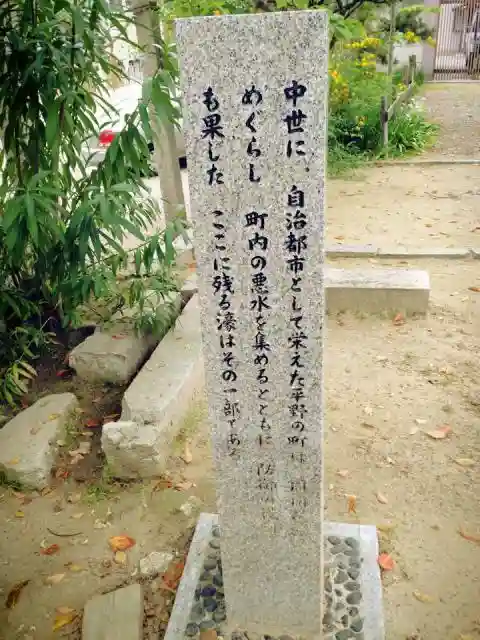 中世に、自治都市として栄えた平野の町は
めぐらし 町内の悪水を集めるとともに 防
も果した ここに残る濠はその一部である